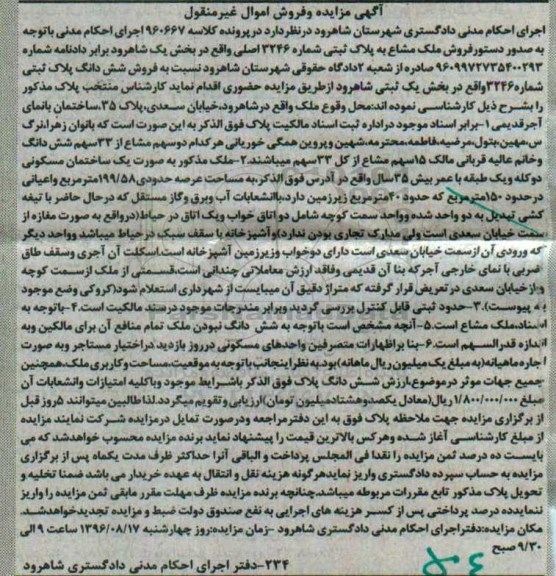 آگهی مزایده وفروش اموال غیرمنقول
اجرای احکام مدنی دادگستری شهرستان شاهرود درنظردارد درپرونده کلاسه ۹۶۰۶۶۷ اجرای احکام مدنی باتوجه
به صدور دستورفروش ملک مشاع به پلاک ثبتی شماره ۳۲۴۶ اصلی واقع در بخش یک شاهرود برابر دادنامه شماره
۹۶۰۹۹۷۲۷۳۵۴۰۰۲۹۳ صادره از شعبه ۲دادگاه حقوقی شهرستان شاهرود نسبت به فروش شش دانگ پلاک ثبتی
شماره۳۲۴۶واقع در بخش یک ثبتی شاهرود ازطریق مزایده حضوری اقدام نماید کارشناس منتخب پلاک مذکور
را بشرح ذیل کارشناسی نموده اند:محل وقوع ملک واقع درشاهرود،خیابان سعدی،پلاک ۳۵.ساختمان بانمای
آجرقدیمی ۱-برابر اسناد موجود دراداره ثبت اسناد مالکیت پلاک فوق الذکر به این صورت است که بانوان زهرا،نرگ
س،مهین،بتول،مرضیه،فاطمه،محترمه،شهین و پروین همگی خوریانی هرکدام دوسهم مشاع از ۳۳سهم شش دانگ
وخانم عالیه قربانی مالک ۱۵سهم مشاع از کل ۳۳سهم میباشند.۲-ملک مذکور به صورت یک ساختمان مسکونی
دوکله ویک طبقه با عمر بیش ۳۵سال واقع در آدرس فوق الذکر،به مساحت عرصه حدودی۱۹۹/۵۸مترمربع واعیانی
درحدود ۱۵۰مترمربع که حدود ۲۰مترمربع زیرزمین دارد،باانشعابات آب وبرق و گاز مستقل که درحال حاضر با تیغه
کشی تبدیل به دو واحد شده وواحد سمت کوچه شامل دو اتاق خواب ویک اتاق در حیاط(درواقع به صورت مغازه از
سمت خیابان سعدی است ولی مدارک تجاری بودن ندارد)و آشپزخانه با سقف سبک درحیاط میباشد وواحد دیگر
که ورودی آن ازسمت خیابان سعدی است دارای دوخواب وزیرزمین آشپزخانه است.اسکلت آن آجری وسقف طاق
ضربی با نمای خارجی آجرکه بنا آن قدیمی وفاقد ارزش معاملاتی چندانی است.قسمتی از ملک ازسمت کوچه
وازخیابان سعدی در تعریض قرار گرفته که متراژ دقیق آن میبایست از شهرداری استعلام شود(کروکی وضع موجود
به پیوست).۳-حدود ثبتی قابل کنترل بررسی گردید وبرابر مندرجات موجود درسند مالکیت است.۴-باتوجه به
اسناد،ملک مشاع است.۵-آنچه مشخص است باتوجه به شش دانگ نبودن ملک تمام منافع آن برای مالکین وبه
اندازه قدرالسهم است.۶-بنا براظهارات متصرفین واحدهای مسکونی درروز بازدید دراختیار مستاجر وبه صورت
اجاره ماهیانه(به مبلغ یک میلیون ریال ماهانه)بود.به نظراینجانب باتوجه به موقعیت،مساحت وکاربری ملک،همچنین
جمیع جهات موثر درموضوع،ارزش شش دانگ پلاک فوق الذکر باشرایط موجود وباکلیه امتیازات وانشعابات آن
مبلغ ۱/۸۰۰/۰۰۰/۰۰۰ریال(معادل یکصدوهشتادمیلیون تومان)ارزیابی وتقویم میگردد.لذا طالبین میتوانند ۵روز قبل
از برگزاری مزایده جهت ملاحظه پلاک فوق به این دفترمراجعه ودرصورت تمایل درمزایده شرکت نمایند مزایده
از مبلغ کارشناسی آغاز شده وهرکس بالاترین قیمت را پیشنهاد نماید برنده مزایده محسوب خواهدشد که می
بایست ده درصد ثمن مزایده را نقدا فی المجلس پرداخت و الباقی آنرا حداکثر ظرف مدت یکماه پس از برگزاری
مزایده به حساب سپرده دادگستری واریز نمایدهرگونه هزینه نقل و انتقال به عهده خریدار می باشد ضمنا تخلیه و
تحویل پلاک مذکور تابع مقررات مربوطه میباشد.چنانچه برنده مزایده ظرف مهلت مقرر مابقی ثمن مزایده را واریز
ننمایدده درصد پرداختی پس از کسر هزینه های اجرایی به نفع صندوق دولت ضبط و مزایده تجدیدخواهدشد.
مکان مزایده:دفتراجرای احکام مدنی دادگستری شاهرود -زمان مزایده:روز چهارشنبه ۱۳۹۶/۰۸/۱۷ ساعت ۹ الی
۹/۳۰ صبح
۲۳۴-دفتر اجرای احکام مدنی دادگستری شاهرود